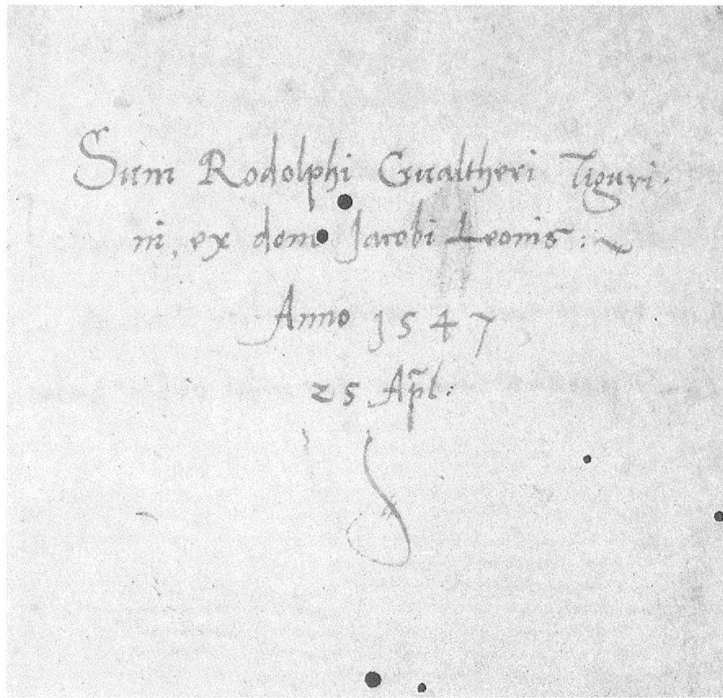 Sum Rodolphi Gualtheri Tiguri-
ni, ex dono Jacobi Leonis:~
Anno 1547
25 Apl: